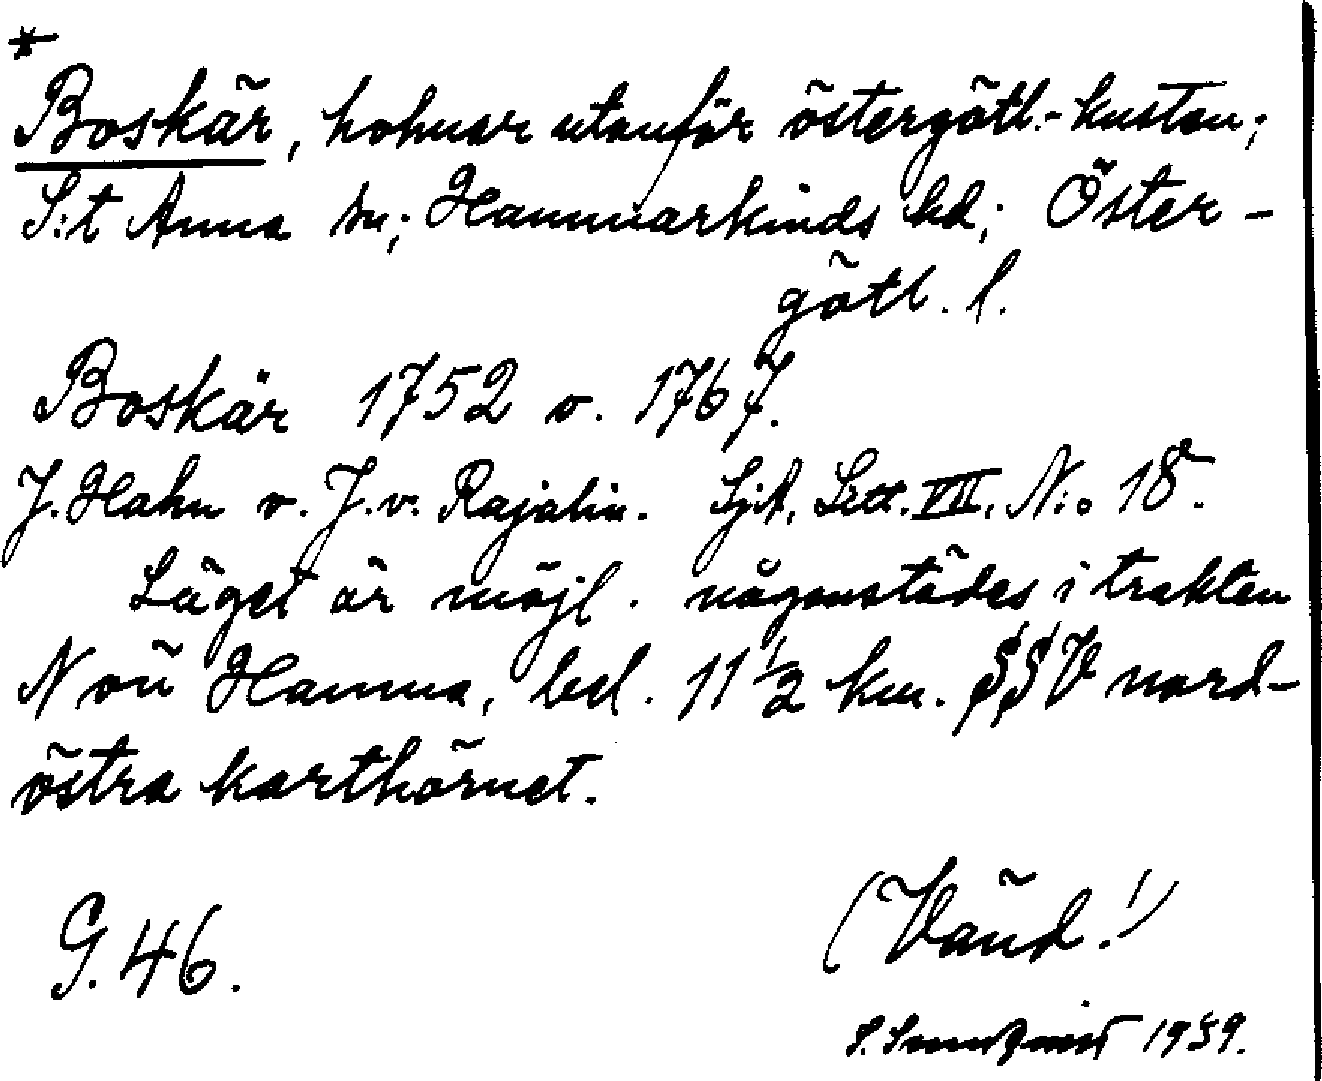 *
Boskär, holmar utanför östergötl.-kusten;
S:t Anna sn; Hammarkinds hd; Öster-
götl. l.
Boskär 1752 o. 1767.
J. Hahn o. J. v. Rajalin. Sjk. Litt. VII. N:o 18.
Läget är möjl. någonstädes i trakten
N on Hamna, bel. 11 1/2 km. SSV nord-
östra karthörnet.
G. 46.
(Vänd!)
S. 1939.